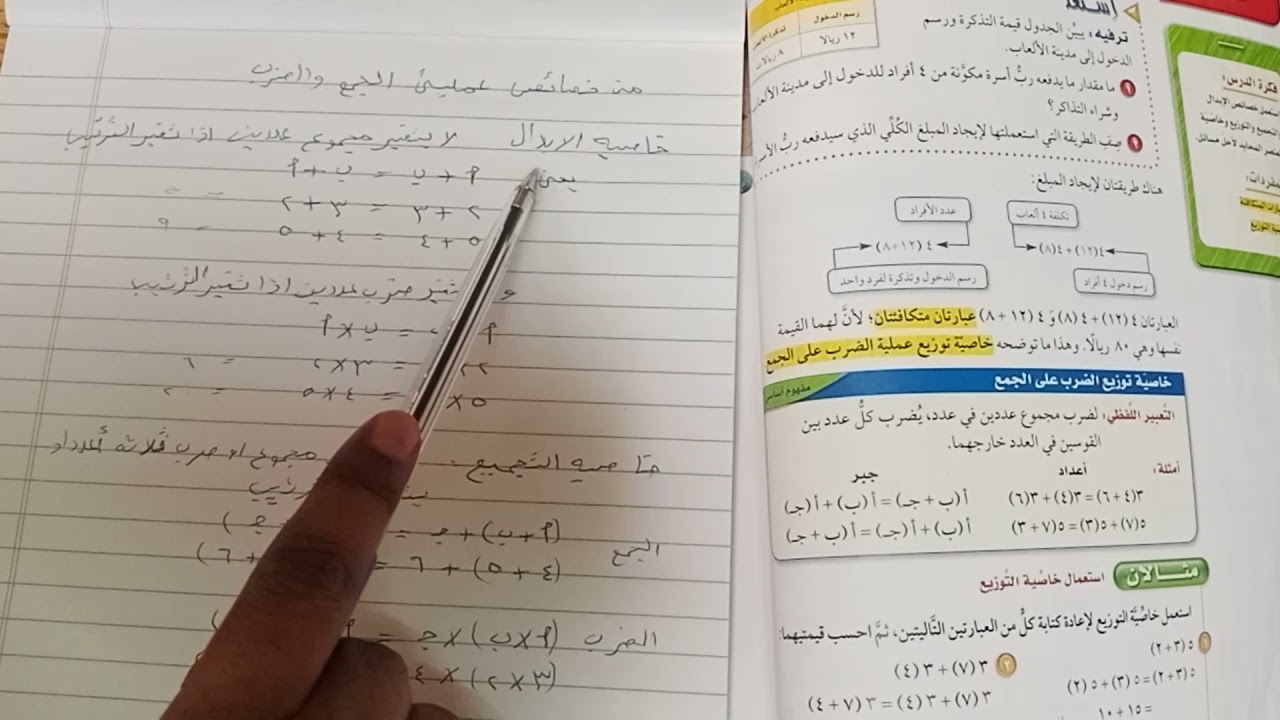 من خصائص عمليتي الجمع والضرب
خاصية الابدال لا يتغير مجموع عددين اذا تغير الترتيب
يعني
أ + ب = ب + أ
٢ + ٣ = ٣ + ٢ = ٥
٥ + ٤ = ٤ + ٥ = ٩
ضرب عددين اذا تغير الترتيب
= ب × أ
٣ × ٢ = ٦
٥ × = ٤ × ٥ = ٢٠
خاصية التجميع مجموع او ضرب ثلاثة أعداد
الجمع (أ + ب) + جـ = جـ)
(٤ + ٥) + ٦ = + ٦)
الضرب (أ × ب) × جـ =
(٣ × ٢) × ٤
رسم الدخول
١٢ ريالا ٨ ريالات
ترفيه: يبيِّن الجدول قيمة التذكرة ورسم
الدخول إلى مدينة الألعاب.
١ ما مقدار ما يدفعه ربُّ أسرة مكوَّنة من ٤ أفراد للدخول إلى مدينة
وشراء التذاكر؟
٢ صف الطريقة التي استعملتها لإيجاد المبلغ الكُلِّي الذي سيدفعه ربُّ
هناك طريقتان لإيجاد المبلغ:
تكلفة ٤ ألعاب عدد الأفراد
٤(١٢) + ٤(٨) ٤(١٢ + ٨)
رسم دخول ٤ أفراد رسم الدخول وتذكرة لفرد واحد
العبارتان ٤(١٢) + ٤(٨) و ٤(١٢ + ٨) عبارتان متكافئتان؛ لأنَّ لهما القيمة
نفسها وهي ٨٠ ريالًا. وهذا ما توضحه خاصيّة توزيع عملية الضرب على الجمع
خاصيّة توزيع الضرب على الجمع مفهوم أساسي
التعبير اللفظي: لضرب مجموع عددين في عدد، يُضرب كلُّ عدد بين
القوسين في العدد خارجهما.
أمثلة: أعداد جبر
٣(٤ + ٦) = ٣(٤) + ٣(٦) أ(ب + جـ) = أ(ب) + أ(جـ)
٥(٧) + ٥(٣) = ٥(٧ + ٣) أ(ب) + أ(جـ) = أ(ب + جـ)
مثالان استعمال خاصيّة التوزيع
استعمل خاصيَّة التوزيع لإعادة كتابة كلٍّ من العبارتين التَّاليتين، ثمَّ احسب قيمتيهما:
١ ٥(٣ + ٢) ٢ ٣(٧) + ٣(٤)
٥(٣ + ٢) = ٥(٣) + ٥(٢) ٣(٧) + ٣(٤) = ٣(٧ + ٤)
= ١٥ + ١٠
فكرة الدرس: